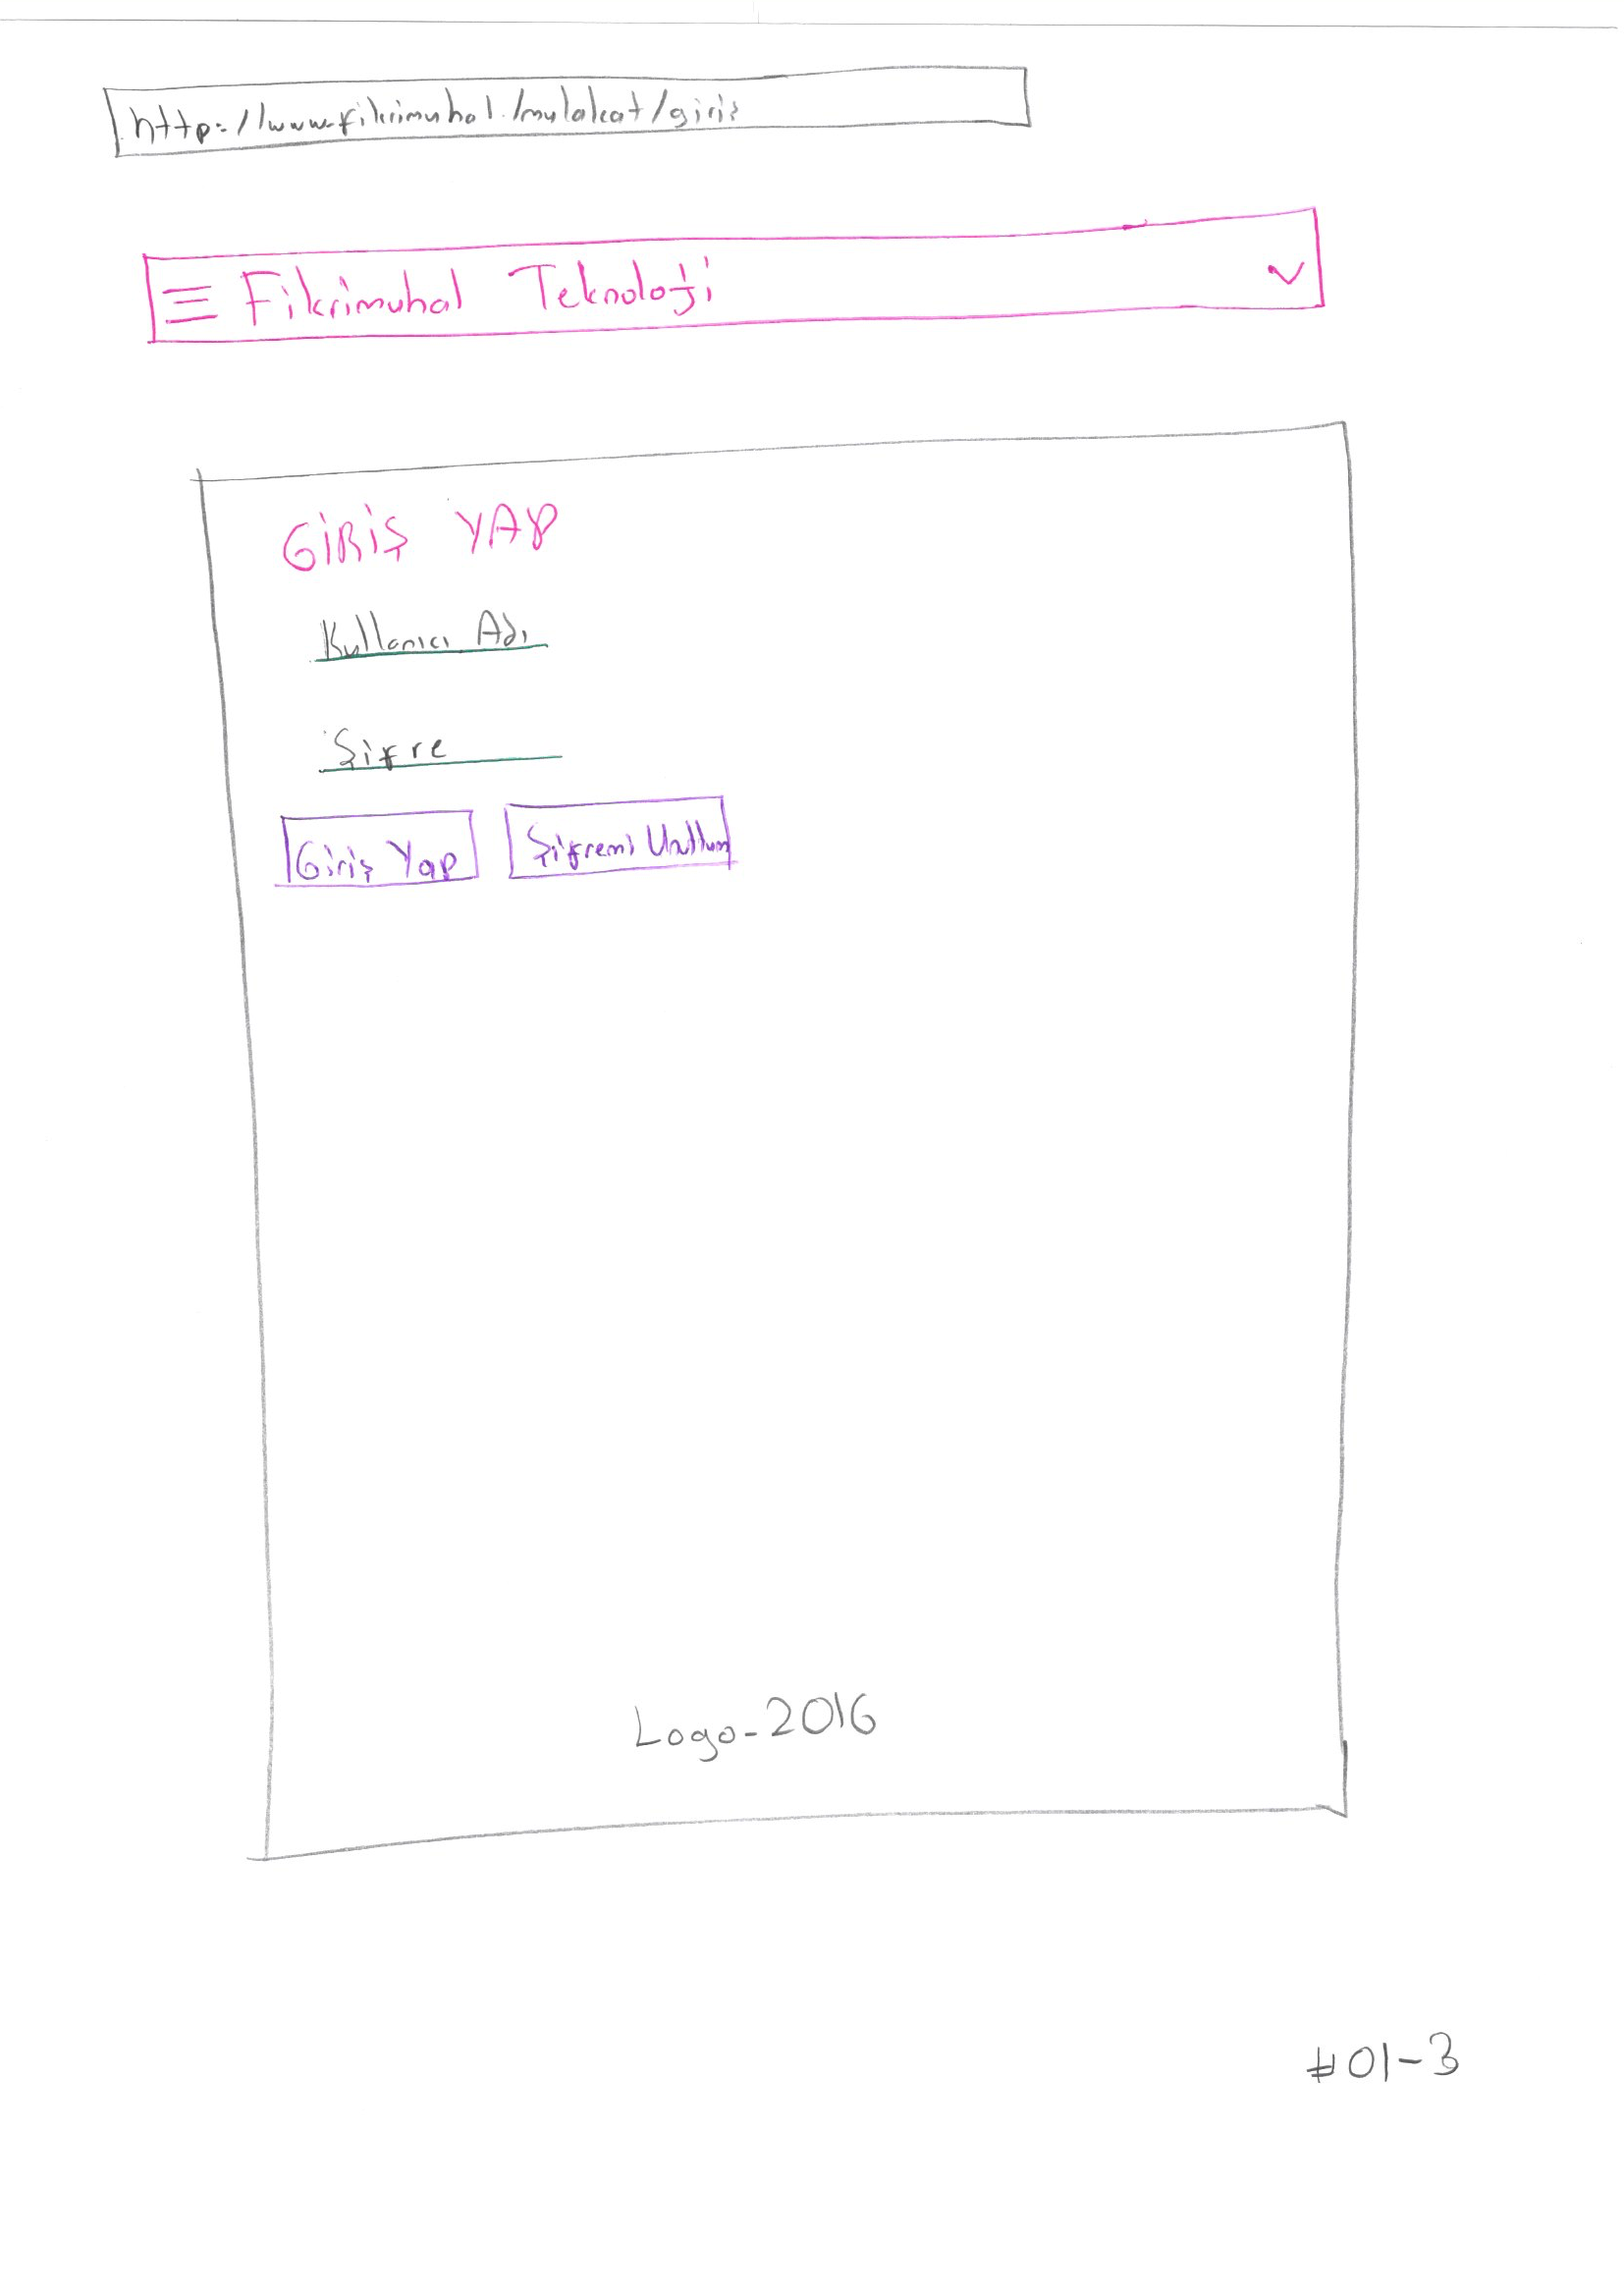 http://www.fikrimuhal./mulakat/giris
Fikrimuhal Teknoloji
GİRİŞ YAP
Kullanıcı Adı
Şifre
Giriş Yap Şifremi Unuttum
Logo-2016
#01-3